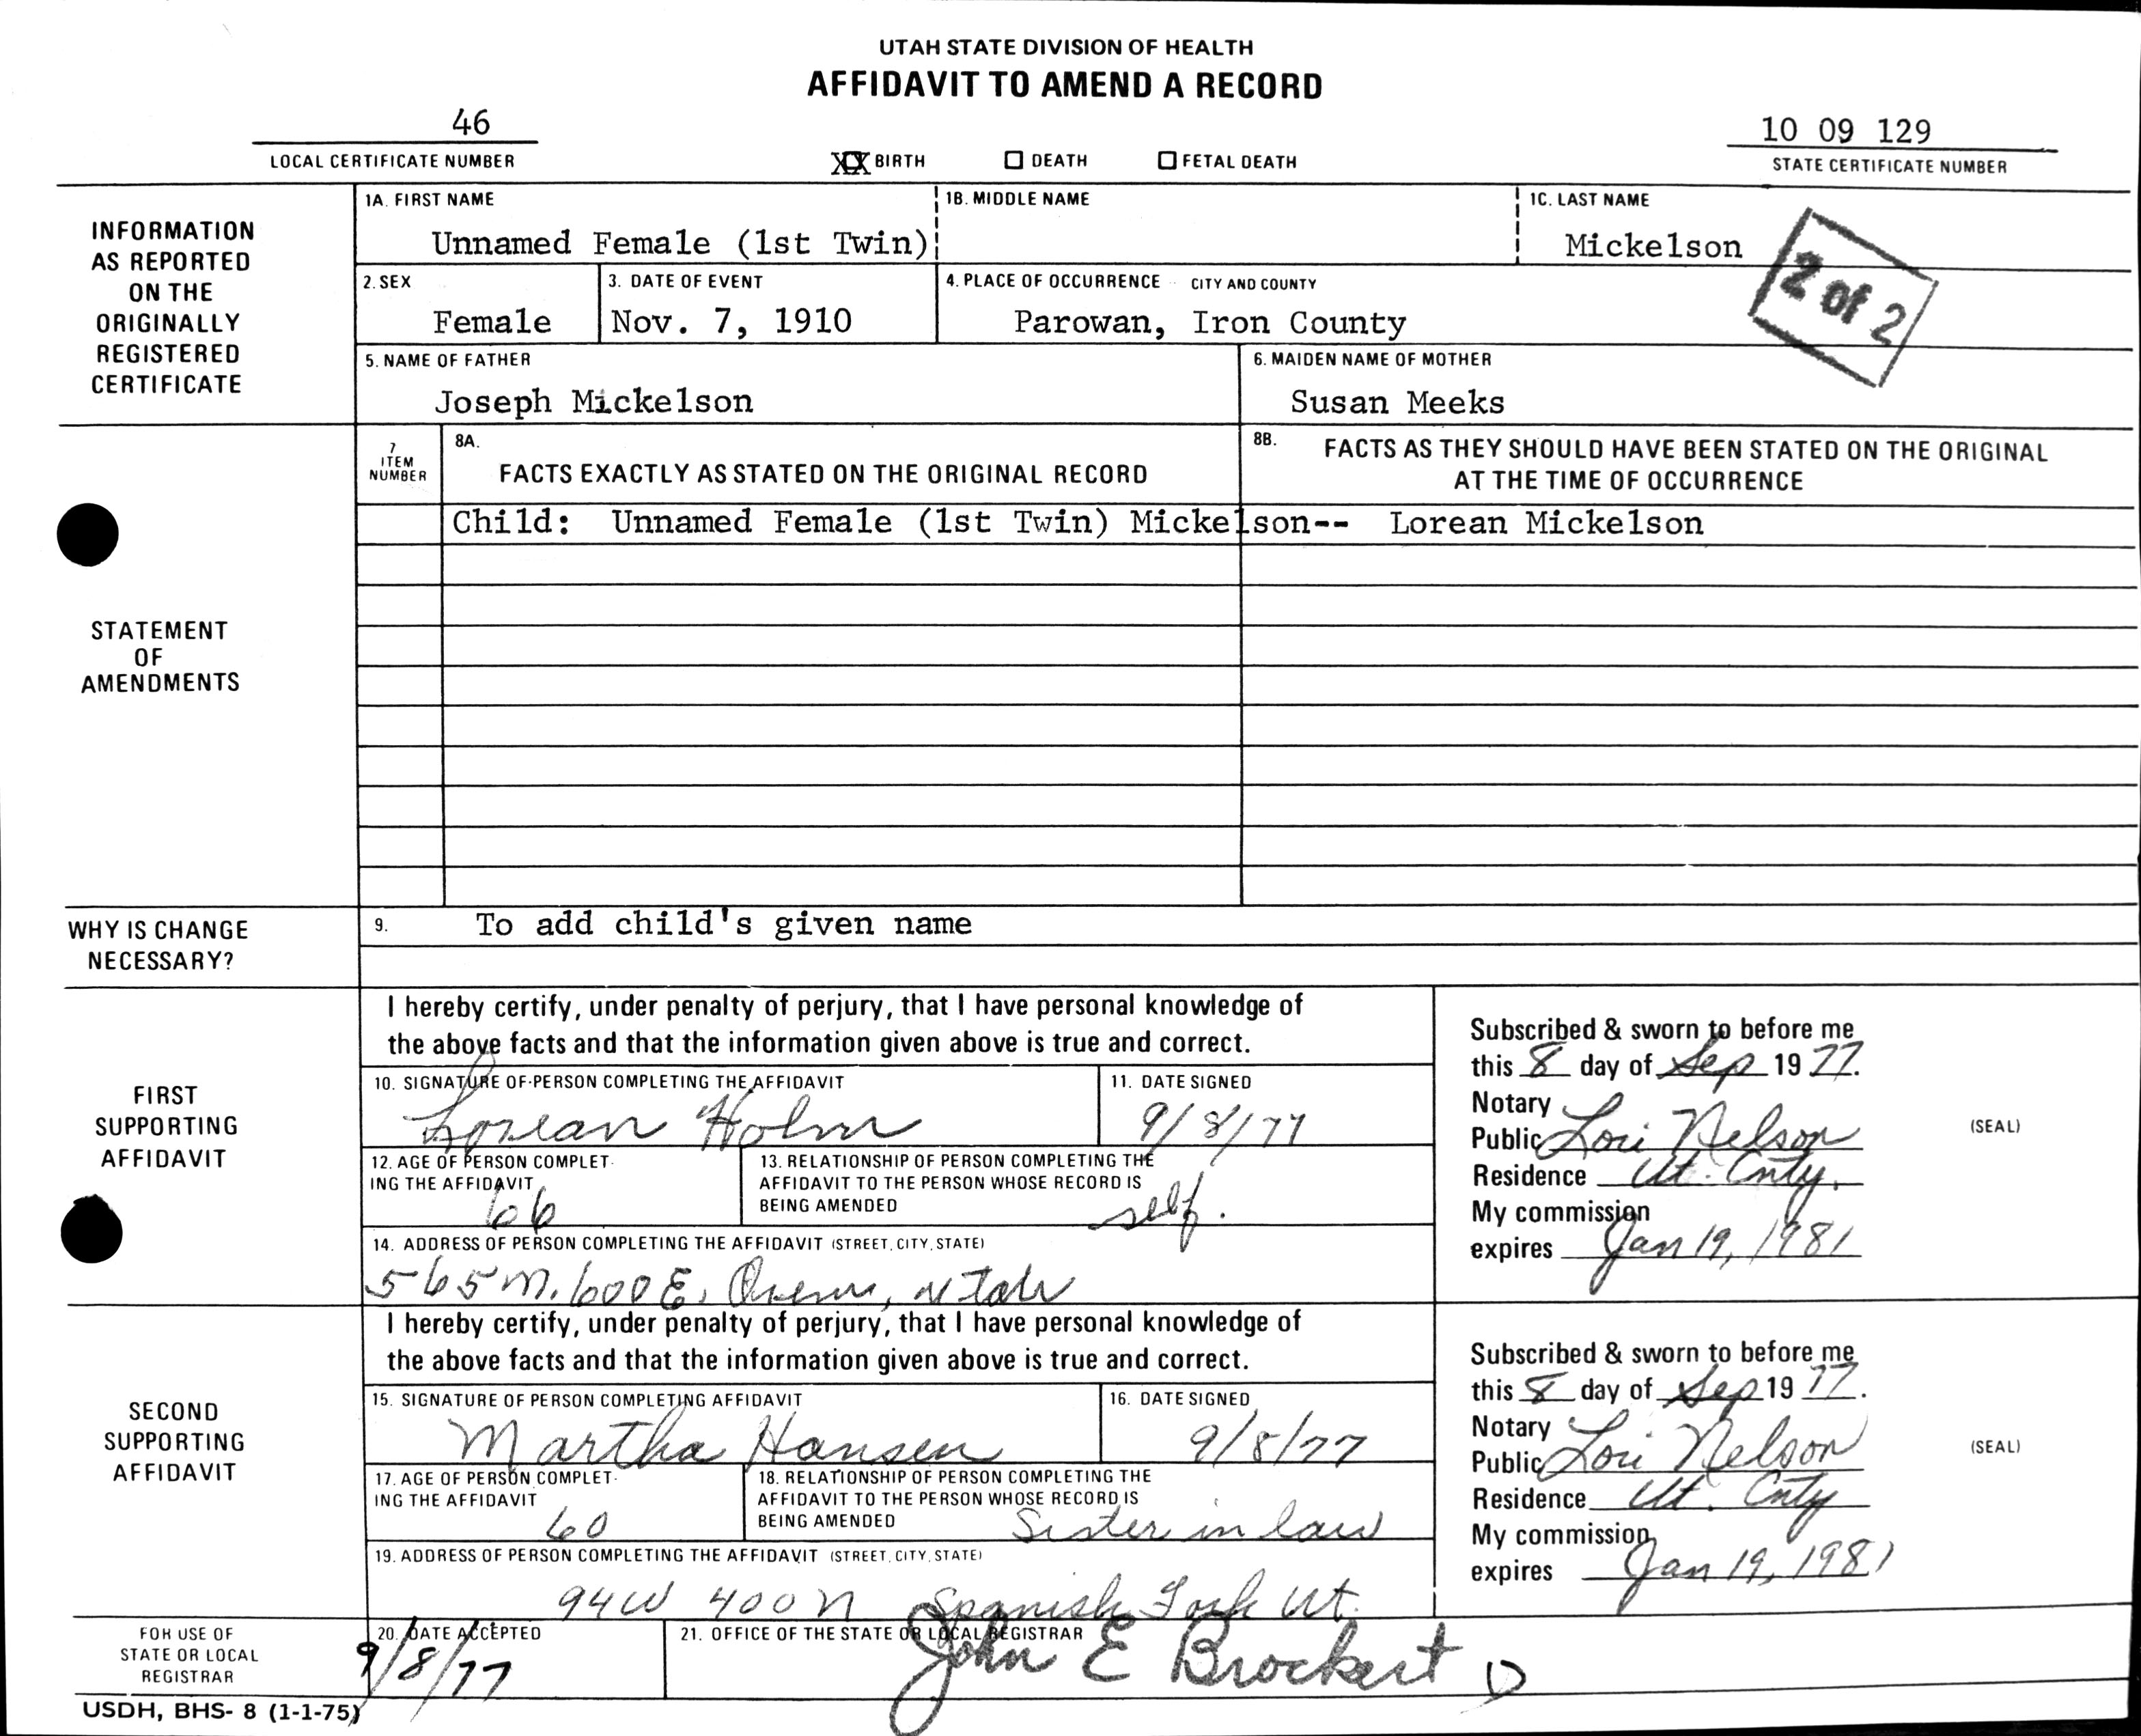 UTAH STATE DIVISION OF HEALTH
AFFIDAVIT TO AMEND A RECORD
46
LOCAL CERTIFICATE NUMBER
XX BIRTH ☐ DEATH ☐ FETAL DEATH
10 09 129
STATE CERTIFICATE NUMBER
INFORMATION
AS REPORTED
ON THE
ORIGINALLY
REGISTERED
CERTIFICATE
1A. FIRST NAME
Unnamed Female (1st Twin)
1B. MIDDLE NAME
1C. LAST NAME
Mickelson
2 of 2
2. SEX
Female
3. DATE OF EVENT
Nov. 7, 1910
4. PLACE OF OCCURRENCE CITY AND COUNTY
Parowan, Iron County
5. NAME OF FATHER
Joseph Mickelson
6. MAIDEN NAME OF MOTHER
Susan Meeks
STATEMENT
OF
AMENDMENTS
7
ITEM
NUMBER
8A.
FACTS EXACTLY AS STATED ON THE ORIGINAL RECORD
8B. FACTS AS THEY SHOULD HAVE BEEN STATED ON THE ORIGINAL
AT THE TIME OF OCCURRENCE
Child: Unnamed Female (1st Twin) Mickelson-- Lorean Mickelson
WHY IS CHANGE
NECESSARY?
9. To add child's given name
FIRST
SUPPORTING
AFFIDAVIT
I hereby certify, under penalty of perjury, that I have personal knowledge of
the above facts and that the information given above is true and correct.
10. SIGNATURE OF PERSON COMPLETING THE AFFIDAVIT
Lorean Holm
11. DATE SIGNED
9/8/77
12. AGE OF PERSON COMPLET-
ING THE AFFIDAVIT
66
13. RELATIONSHIP OF PERSON COMPLETING THE
AFFIDAVIT TO THE PERSON WHOSE RECORD IS
BEING AMENDED
self.
14. ADDRESS OF PERSON COMPLETING THE AFFIDAVIT (STREET, CITY, STATE)
565 N. 600 E. Utah
Subscribed & sworn to before me
this 8 day of Sep 19 77.
Notary
Public Lori Nelson
(SEAL)
Residence Ut. Cnty.
My commission
expires Jan 19, 1981
SECOND
SUPPORTING
AFFIDAVIT
I hereby certify, under penalty of perjury, that I have personal knowledge of
the above facts and that the information given above is true and correct.
15. SIGNATURE OF PERSON COMPLETING AFFIDAVIT
Martha Hansen
16. DATE SIGNED
9/8/77
17. AGE OF PERSON COMPLET-
ING THE AFFIDAVIT
60
18. RELATIONSHIP OF PERSON COMPLETING THE
AFFIDAVIT TO THE PERSON WHOSE RECORD IS
BEING AMENDED
Sister in law
19. ADDRESS OF PERSON COMPLETING THE AFFIDAVIT (STREET, CITY, STATE)
94 W 400 N Spanish Fork Ut.
Subscribed & sworn to before me
this 8 day of Sep 19 77.
Notary
Public Lori Nelson
(SEAL)
Residence Ut. Cnty
My commission
expires Jan 19, 1981
FOR USE OF
STATE OR LOCAL
REGISTRAR
20. DATE ACCEPTED
9/8/77
21. OFFICE OF THE STATE OR LOCAL REGISTRAR
John E Brockert
USDH, BHS- 8 (1-1-75)